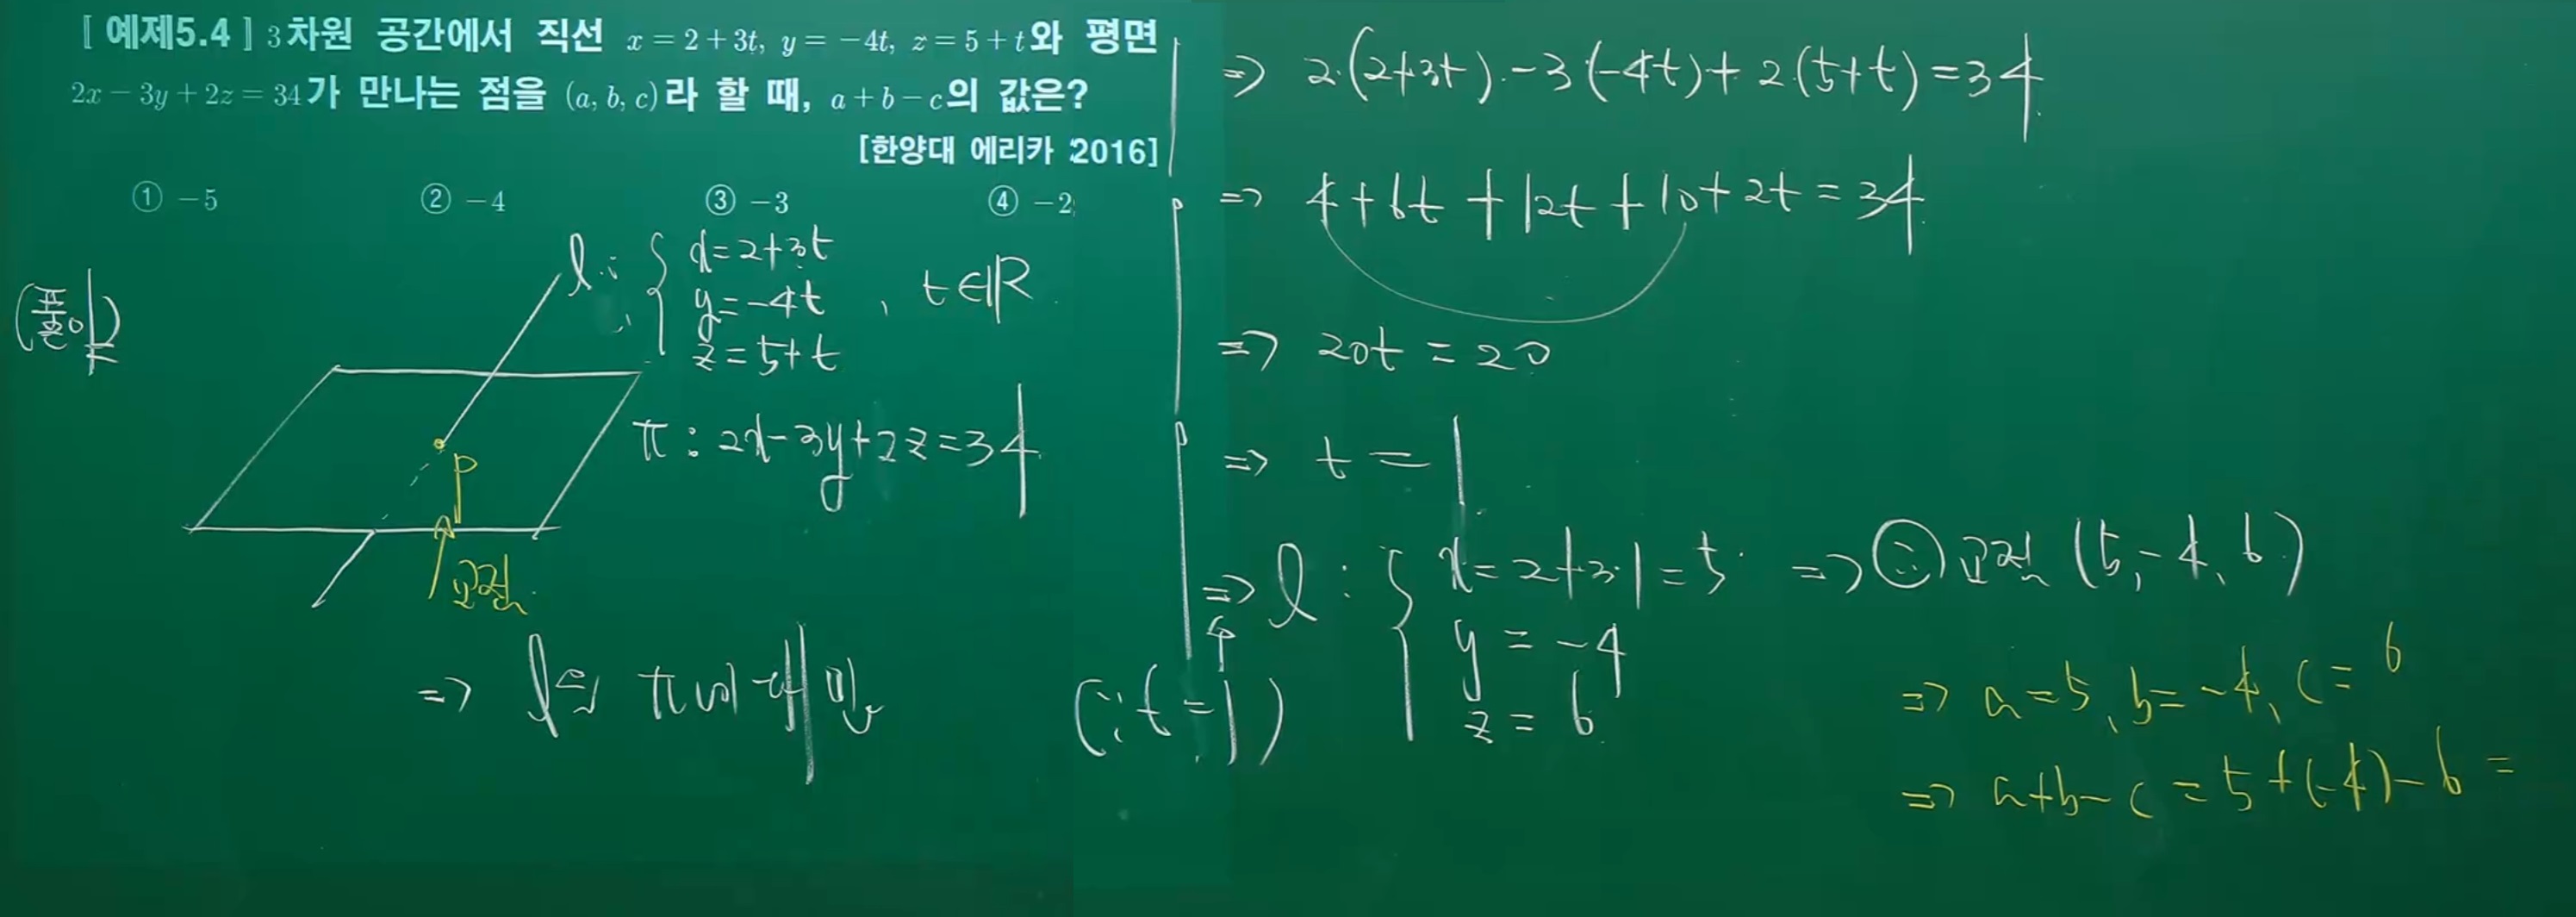 [ 예제5.4 ] 3차원 공간에서 직선 x = 2 + 3t, y = −4t, z = 5 + t와 평면
2x − 3y + 2z = 34가 만나는 점을 (a, b, c)라 할 때, a + b − c의 값은?
[한양대 에리카 2016]
① −5 ② −4 ③ −3 ④ −2
(풀이)
l : { x=2+3t
y=-4t , t∈ℝ
z=5+t
π : 2x-3y+2z=34
P
교점
⇒ l을 π에 대입
⇒ 2·(2+3t)-3·(-4t)+2(5+t)=34
⇒ 4+6t+12t+10+2t=34
⇒ 20t=20
⇒ t=1
⇒ l : { x=2+3·1=5
y=-4
z=6
(∵t=1)
⇒ ∴ 교점 (5,-4,6)
⇒ a=5, b=-4, c=6
⇒ a+b-c=5+(-4)-6=